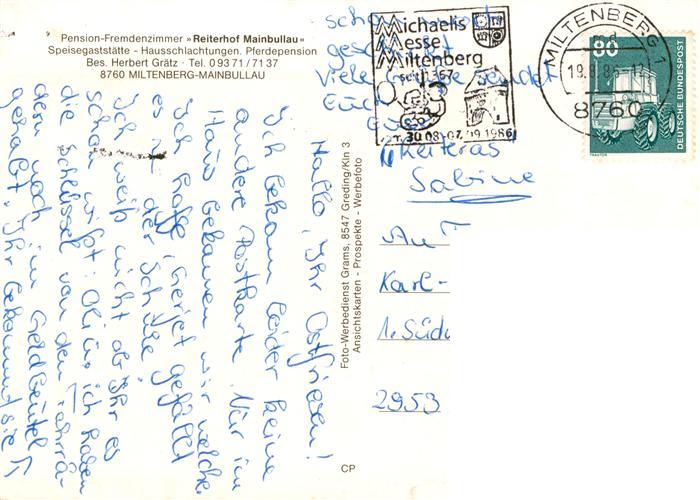 Pension-Fremdenzimmer »Reiterhof Mainbullau"
Speisegaststätte - Hausschlachtungen. Pferdepension
Bes. Herbert Grätz · Tel. 0 93 71 / 71 37
8760 MILTENBERG-MAINBULLAU
Hallo, Ihr Ostfriesen!
Ich bekam leider keine
andere Postkarte. Nur im
Haus bekamen wir welche.
Ich hoffe, Gerjet gefällt
es in der Schule!
Ich weiß nicht ob Ihr es
schon wißt:
die Schlüssel von den Fahrrä-
dern noch im Geldbeutel
gehabt. Ihr bekommt sie
Foto-Werbedienst Grams, 8547 Greding/Kin 3
Ansichtskarten - Prospekte - Werbefoto
CP
Michaelis
Messe
Miltenberg
seit 1367
30.08.-07.09.1986
MILTENBERG 1
8760
80
DEUTSCHE BUNDESPOST
TRAKTOR
schon
Viele
Euch
Sabine
An
Karl-
1. Südw
2953